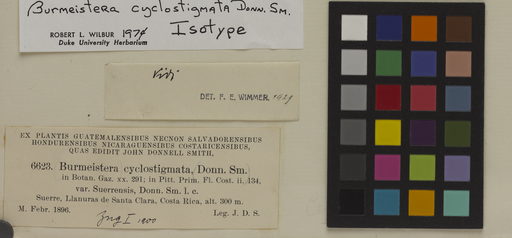 Burmeistera cyclostigmata Donn. Sm.
Isotype
ROBERT L. WILBUR 1974
Duke University Herbarium
vidi
DET. F. E. WIMMER, 1929
EX PLANTIS GUATEMALENSIBUS NECNON SALVADORENSIBUS
HONDURENSIBUS NICARAGUENSIBUS COSTARICENSIBUS,
QUAS EDIDIT JOHN DONNELL SMITH.
6623. Burmeistera cyclostigmata, Donn. Sm.
in Botan. Gaz. xx. 291; in Pitt. Prim. Fl. Cost. ii. 134.
var. Suerrensis, Donn. Sm. l. c.
Suerre, Llanuras de Santa Clara, Costa Rica, alt. 300 m.
M. Febr. 1896.
Leg. J. D. S.
I 1900